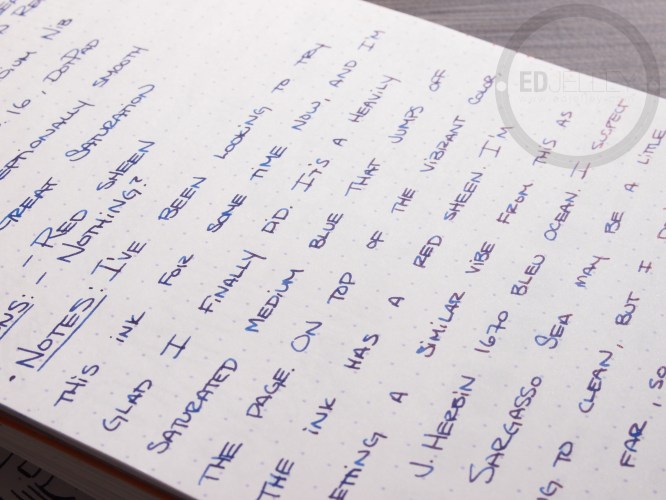 NIB
16, DOTPAD
SMOOTH
GREAT SATURATION
- RED SHEEN
- NOTHING?
• NOTES: I'VE BEEN LOOKING TO TRY
THIS INK FOR SOME TIME NOW, AND I'M
GLAD I FINALLY DID. IT'S A HEAVILY
SATURATED MEDIUM BLUE THAT JUMPS OFF
THE PAGE. ON TOP OF THE VIBRANT COLOR,
THE INK HAS A RED SHEEN. I'M
ETTING A SIMILAR VIBE FROM THIS AS
J. HERBIN 1670 BLEU OCEAN. I SUSPECT
SARGASSO SEA MAY BE A LITTLE
G TO CLEAN, BUT I
FAR, SO
ED JELLEY